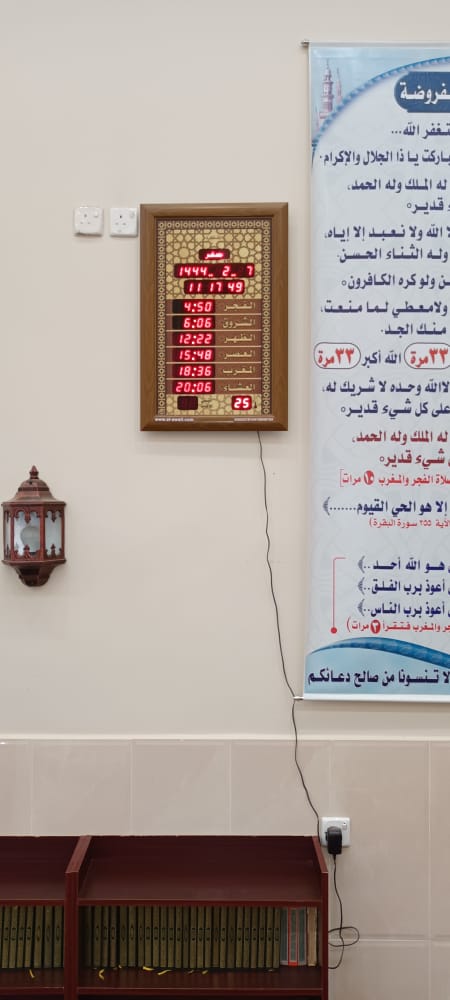 صفر
1444 2 7
11 17 49
4:50 الفجر
6:06 الشروق
12:22 الظهر
15:48 العصر
18:36 المغرب
20:06 العشاء
25
تغفر الله...
باركت يا ذا الجلال والإكرام.
له الملك وله الحمد،
ء قدير
الله ولا نعبد إلا إياه،
وله الثناء الحسن.
ن ولو كره الكافرون
ولامعطي لما منعت،
منك الجد.
٣٣مرة الله أكبر ٣٣مرة
لاالله وحده لا شريك له،
على كل شيء قدير
له الملك وله الحمد،
شيء قدير
صلاة الفجر والمغرب ١٠ مرات]
إلا هو الحي القيوم.......
الآية ٢٥٥ سورة البقرة)
هو الله أحد..
أعوذ برب الفلق..
أعوذ برب الناس..
جر والمغرب فتقرأ ٣ مرات)
لا تنسونا من صالح دعائكم